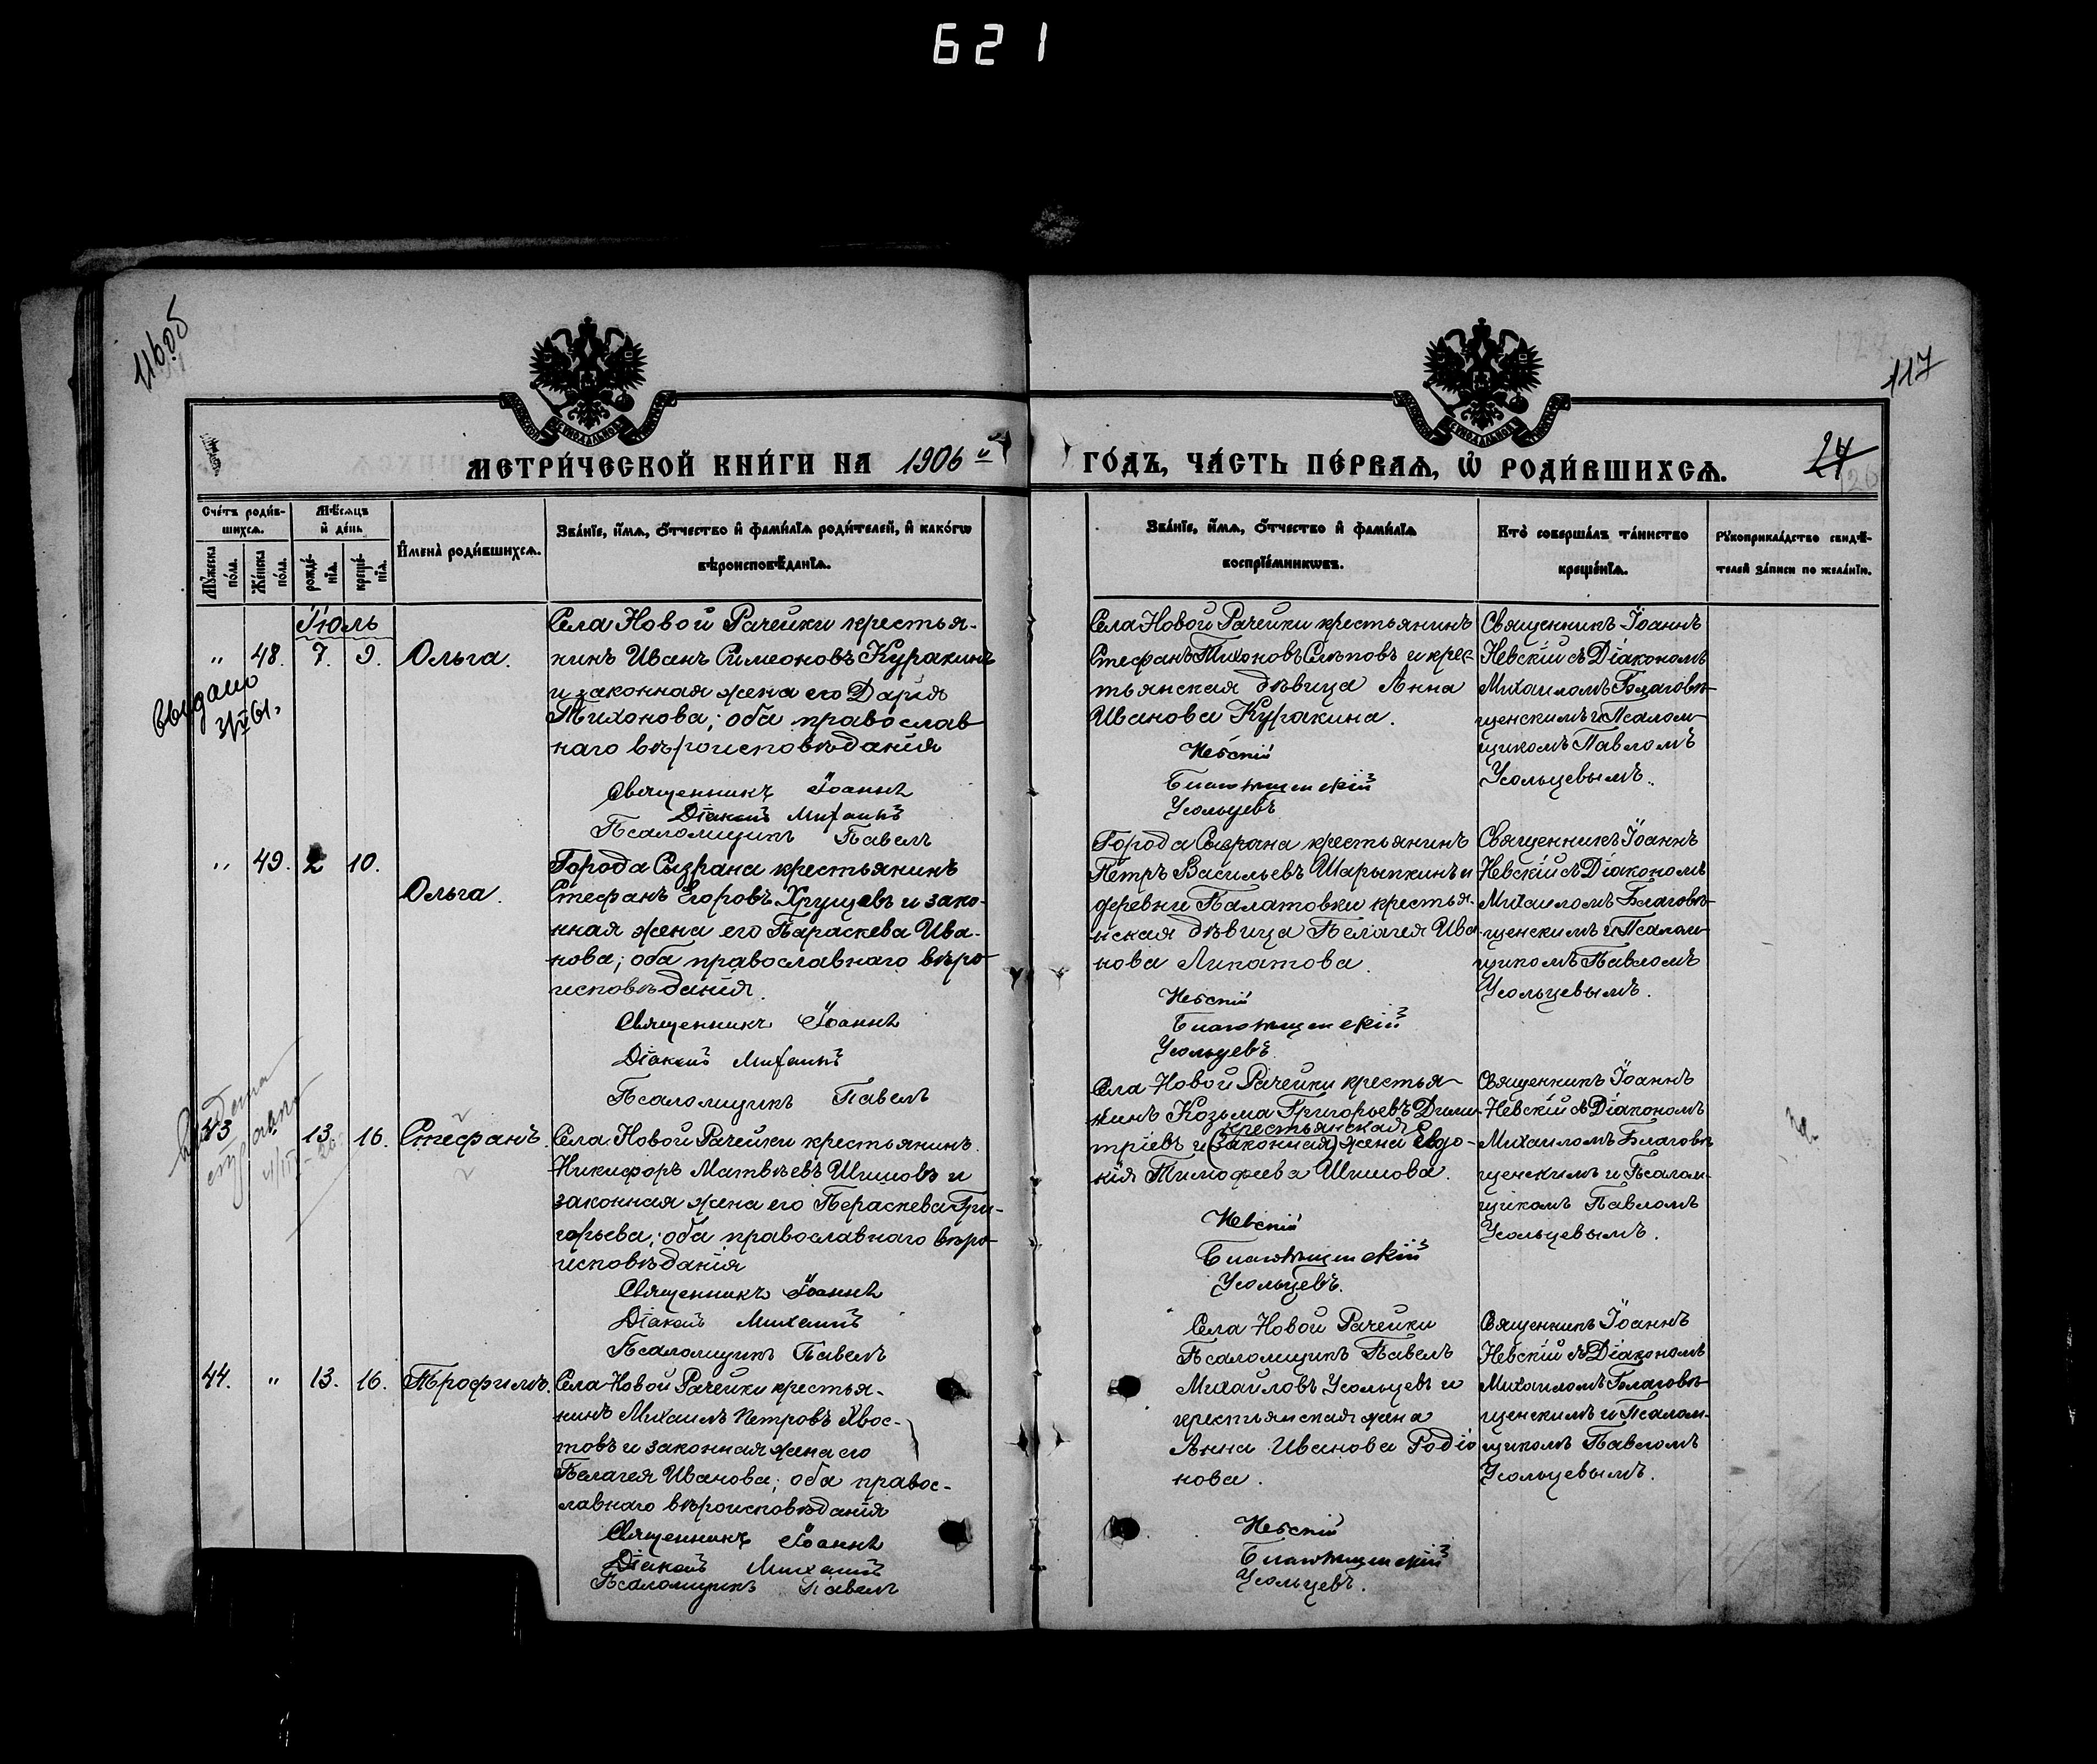 621
116об
117
МЕТРИ́ЧЕСКОЙ КНИ́ГИ НА 1906 й
ГО́ДЪ, ЧА́СТЬ ПЕ́РВАѦ, Ѡ РОДИ́ВШИХСѦ.
24
Сче́тъ роди́в-
шихсѧ.
Мѣ́сѧцъ
и҆ де́нь
Мꙋ́жеска
по́ла.
Же́нска
по́ла.
рожде́-
нїѧ.
креще́-
нїѧ.
И҆мена̀ роди́вшихсѧ.
Зва́нїе, и҆́мѧ, ѻ҆́тчество и҆ фами́лїѧ роди́телей, и҆ како́гѡ
вѣроисповѣ́данїѧ.
Зва́нїе, и҆́мѧ, ѻ҆́тчество и҆ фами́лїѧ
воспрїе́мникѡвъ.
Кто̀ соверша́лъ та́инство
креще́нїѧ.
Рꙋкоприкла́дство свидѣ́-
телей за́писи по жела́нїю.
Іюль
„ 48. 7. 9. Ольга.
выдано
Села Новой Рачейки крестья-
нинъ Иванъ Симеоновъ Куракинъ
и законная жена его Дарія
Тихонова; оба православ
наго вѣроисповѣданія
Священникъ Іоаннъ
Діаконъ Михаилъ
Псаломщикъ Павелъ
Села Новой Рачейки крестьянинъ
Стефанъ Тихоновъ Слѣповъ и крес
тьянская дѣвица Анна
Иванова Куракина.
Невскій
Благовѣщенскій
Усольцевъ
Священникъ Іоаннъ
Невскій съ Діакономъ
Михаиломъ Благовѣ-
щенскимъ и Псалом-
щикомъ Павломъ
Усольцевымъ.
„ 49. 2 10.
Ольга.
Города Сызрана крестьянинъ
Стефанъ Егоровъ Хрущевъ и зако-
нная жена его Параскева Ива-
нова; оба православнаго вѣро-
исповѣданія.
Священникъ Іоаннъ
Діаконъ Михаилъ
Псаломщикъ Павелъ
Города Сызрана крестьянинъ
Петръ Васильевъ Шарыпкинъ и
деревни Палатовки крестья-
нская дѣвица Пелагея Ива-
нова Липатова.
Невскій
Благовѣщенскій
Усольцевъ
Священникъ Іоаннъ
Невскій съ Діакономъ
Михаиломъ Благовѣ-
щенскимъ и Псалом-
щикомъ Павломъ
Усольцевымъ.
43 „ 13. 16. Стефанъ.
Села Новой Рачейки крестьянинъ
Никифоръ Матвѣевъ Шишовъ и
законная жена его Пераскева Гри-
горьева; оба православнаго вѣро-
исповѣданія
Священникъ Іоаннъ
Діаконъ Михаилъ
Псаломщикъ Павелъ
Села Новой Рачейки крестья-
нинъ Козьма Григорьевъ Дими-
крестьянская
тріевъ и (законная) жена Евдо-
кія Тимофеева Шишова.
Невскій
Благовѣщенскій
Усольцевъ.
Священникъ Іоаннъ
Невскій съ Діакономъ
Михаиломъ Благовѣ
щенскимъ и Псалом-
щикомъ Павломъ
Усольцевымъ.
44. „ 13. 16. Трофимъ.
Села Новой Рачейки крестья-
нинъ Михаилъ Петровъ Хвос-
товъ и законная жена его
Пелагея Иванова; оба правос-
лавнаго вѣроисповѣданія
Священникъ Іоаннъ
Діаконъ Михаилъ
Псаломщикъ Павелъ
Села Новой Рачейки
Псаломщикъ Павелъ
Михайловъ Усольцевъ и
крестьянская жена
Анна Иванова Родіо
нова.
Невскій
Благовѣщенскій
Усольцевъ.
Священникъ Іоаннъ
Невскій съ Діакономъ
Михаиломъ Благовѣ-
щенскимъ и Псалом-
щикомъ Павломъ
Усольцевымъ.